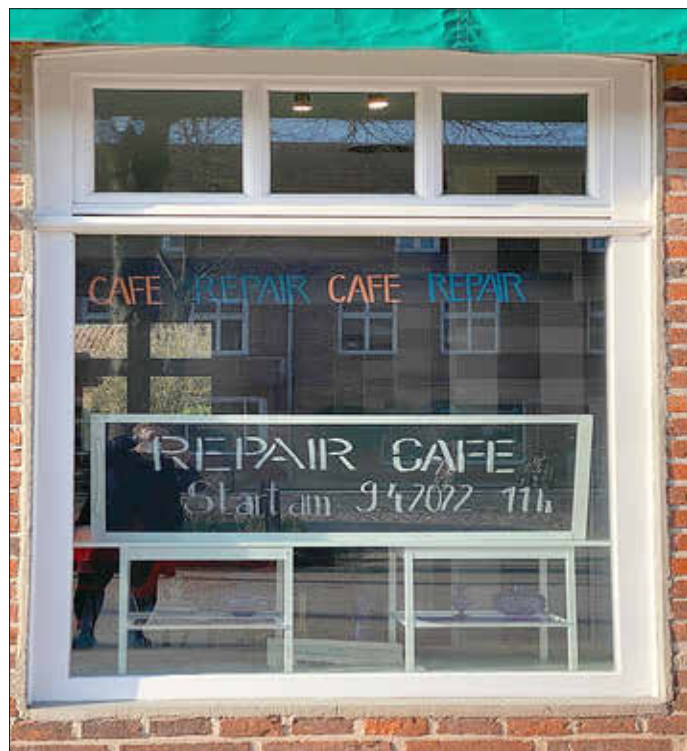 CAFE REPAIR CAFE REPAIR
REPAIR CAFE
Start am 9 4 2022 11h